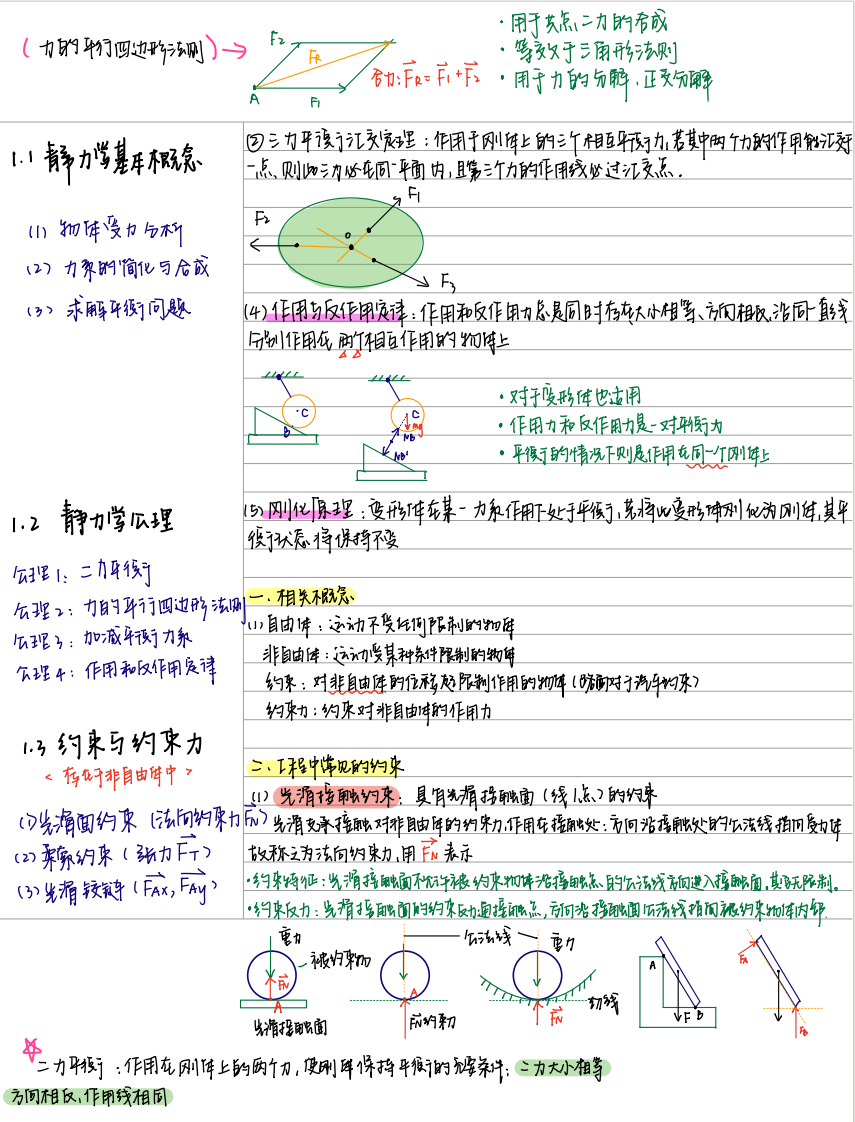 (力的平行四边形法则)→
F₂
F_R
A
F₁
合力:F_R = F₁ + F₂
· 用于共点二力的合成
· 等效于三角形法则
· 用于力的分解,正交分解
1.1 静力学基本概念
(1) 物体受力分析
(2) 力系的简化与合成
(3) 求解平衡问题
② 三力平衡汇交定理:作用于刚体上的三个相互平衡力,若其中两个力的作用能汇交于
一点,则此三力必在同一平面内,且第三个力的作用线必过汇交点.
F₁
F₂
O
F₃
(4) 作用与反作用定律:作用和反作用力总是同时存在大小相等、方向相反,沿同一直线
分别作用在两个相互作用的物体上
C
B
C
mg
NB
NB'
· 对于变形体也适用
· 作用力和反作用力是一对平衡力
· 平衡的情况下则是作用在同一个刚体上
1.2 静力学公理
公理1:二力平衡
公理2:力的平行四边形法则
公理3:加减平衡力系
公理4:作用和反作用定律
(5) 刚化原理:变形体在某一力系作用下处于平衡,若将此变形体刚化为刚体,其平
衡状态将保持不变
一.相关概念
(1) 自由体:运动不受任何限制的物体
非自由体:运动受某种条件限制的物体
约束:对非自由体的位移起限制作用的物体(路面对于汽车约束)
约束力:约束对非自由体的作用力
1.3 约束与约束力
<存在于非自由体中>
(1) 光滑面约束 (法向约束力F_N)
(2) 柔索约束 (张力F_T)
(3) 光滑铰链 (F_Ax, F_Ay)
二.工程中常见的约束
(1) 光滑接触约束:具有光滑接触面(线、点)的约束
光滑支承接触对非自由体的约束力,作用在接触处;方向沿接触处的公法线指向受力体
故称之为法向约束力,用 F_N 表示
·约束特征:光滑接触面不允许被约束物体沿接触点的公法线方向进入接触面,其它无限制.
·约束反力:光滑接触面的约束反力通接触点,方向沿接触面公法线指向被约束物体内部.
重力
被约束物
F_N
A
光滑接触面
公法线
A
F_N约束力
重力
切线
F_N
A
F
B
F_A
F_B
二力平衡:作用在刚体上的两个力,使刚体保持平衡的充要条件:二力大小相等
方向相反,作用线相同